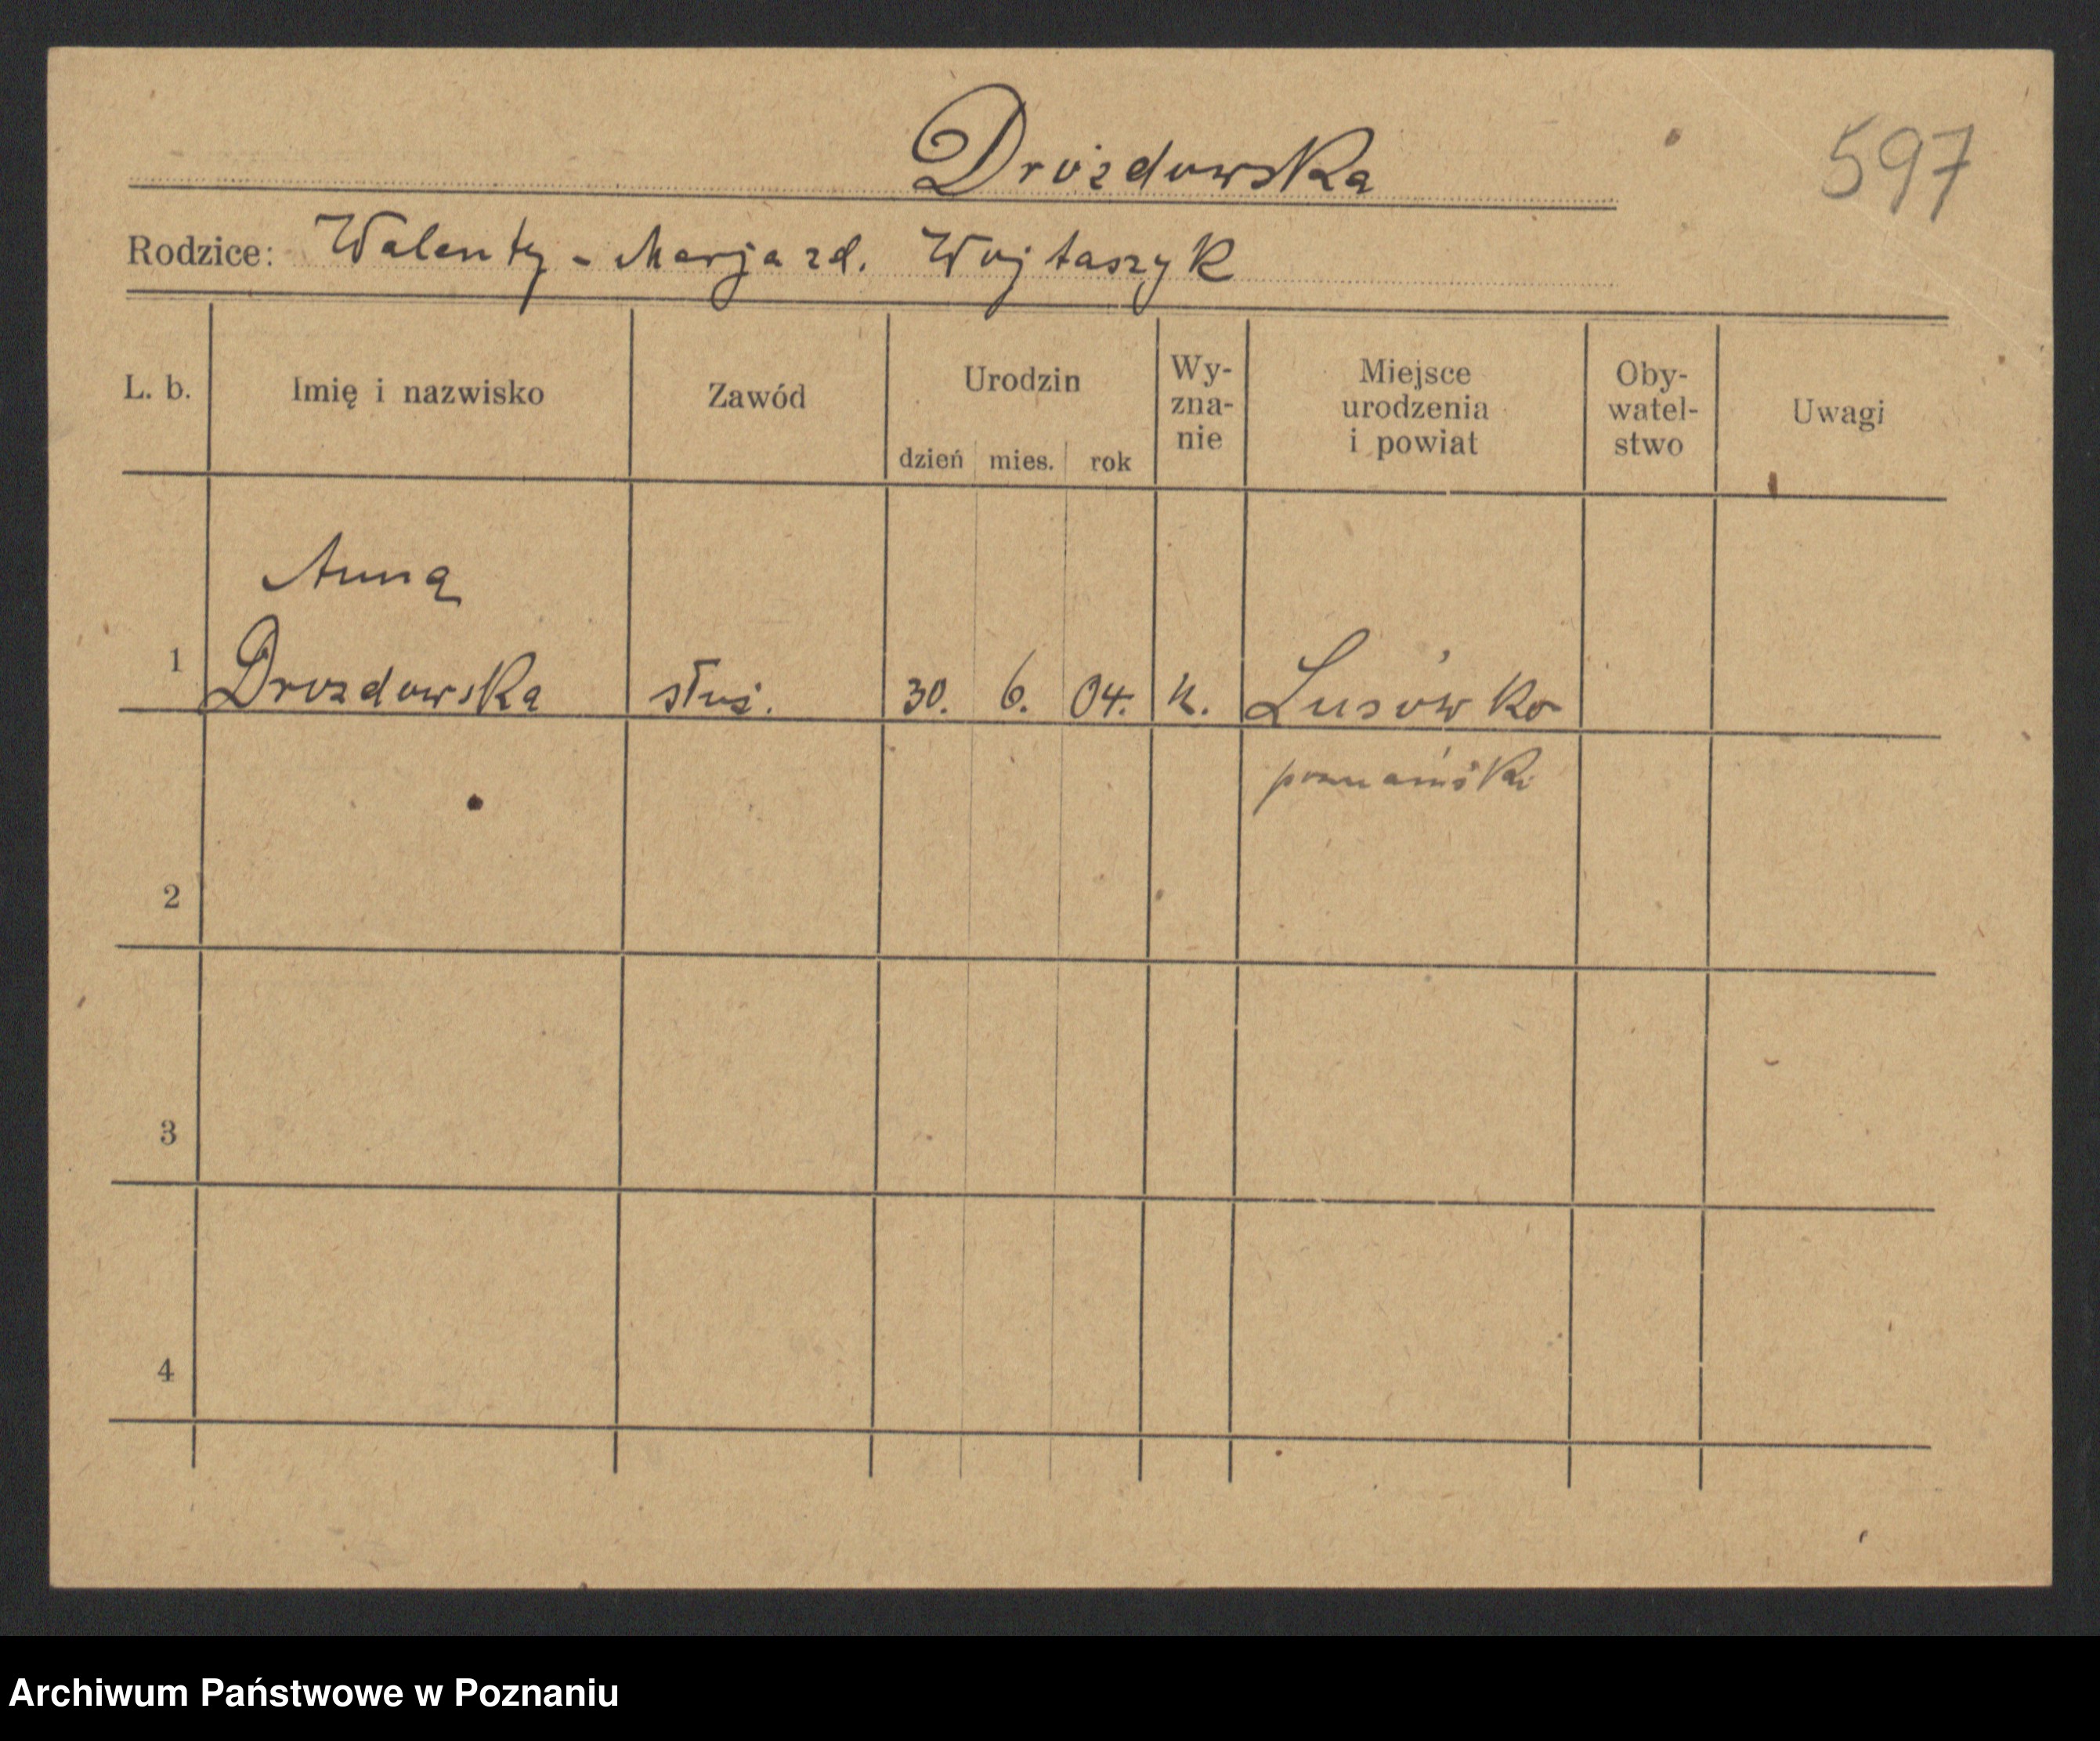 Drozdowska
597
Rodzice: Walenty - Marja zd. Wojtaszyk
L. b. Imię i nazwisko Zawód Urodzin dzień mies. rok Wy-zna-nie Miejsce urodzenia i powiat Oby-watel-stwo Uwagi
Anna
1 Drozdowska służ. 30. 6. 04. k. Lusówko
poznański
2
3
4
Archiwum Państwowe w Poznaniu